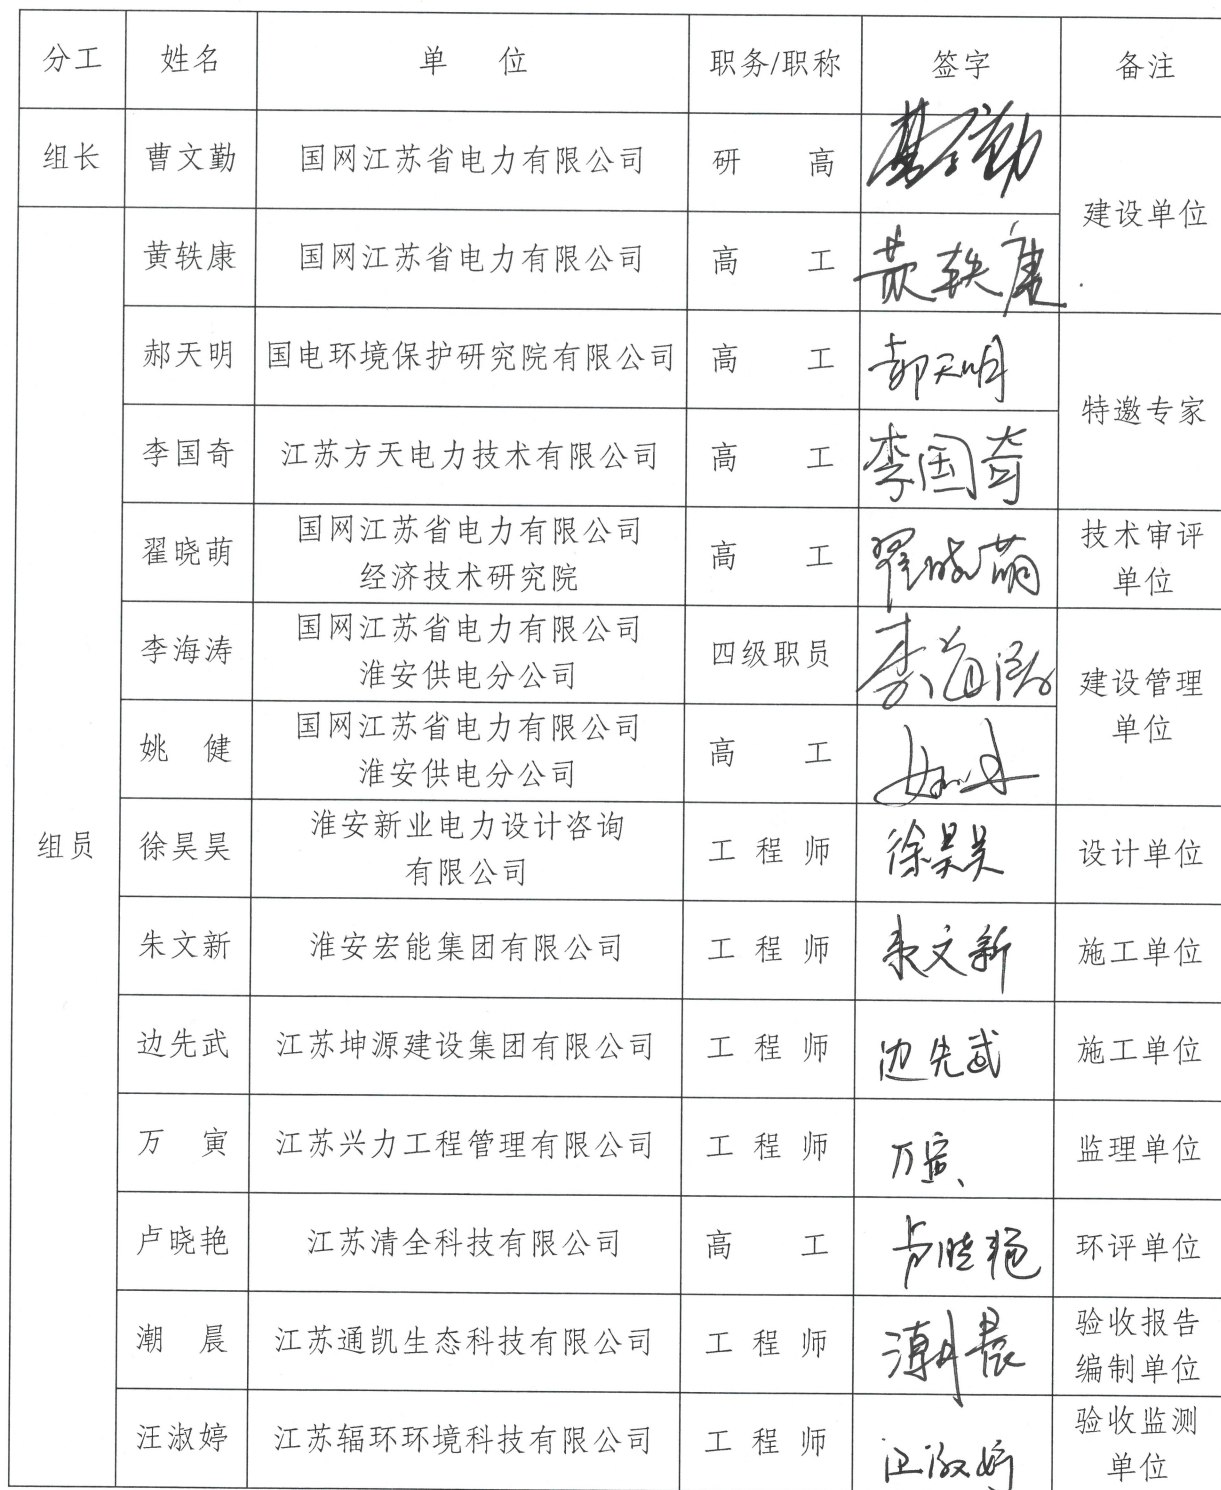 分工 姓名 单 位 职务/职称 签字 备注
组长 曹文勤 国网江苏省电力有限公司 研 高 建设单位
组员 黄轶康 国网江苏省电力有限公司 高 工 黄轶康
郝天明 国电环境保护研究院有限公司 高 工 郝天明 特邀专家
李国奇 江苏方天电力技术有限公司 高 工 李国奇
翟晓萌 国网江苏省电力有限公司 高 工 翟晓萌 技术审评
经济技术研究院 单位
李海涛 国网江苏省电力有限公司 四级职员 李海涛 建设管理
淮安供电分公司 单位
姚 健 国网江苏省电力有限公司 高 工
淮安供电分公司
徐昊昊 淮安新业电力设计咨询 工 程 师 徐昊昊 设计单位
有限公司
朱文新 淮安宏能集团有限公司 工 程 师 朱文新 施工单位
边先武 江苏坤源建设集团有限公司 工 程 师 边先武 施工单位
万 寅 江苏兴力工程管理有限公司 工 程 师 万寅 监理单位
卢晓艳 江苏清全科技有限公司 高 工 卢晓艳 环评单位
潮 晨 江苏通凯生态科技有限公司 工 程 师 潮晨 验收报告
编制单位
汪淑婷 江苏辐环环境科技有限公司 工 程 师 汪淑婷 验收监测
单位